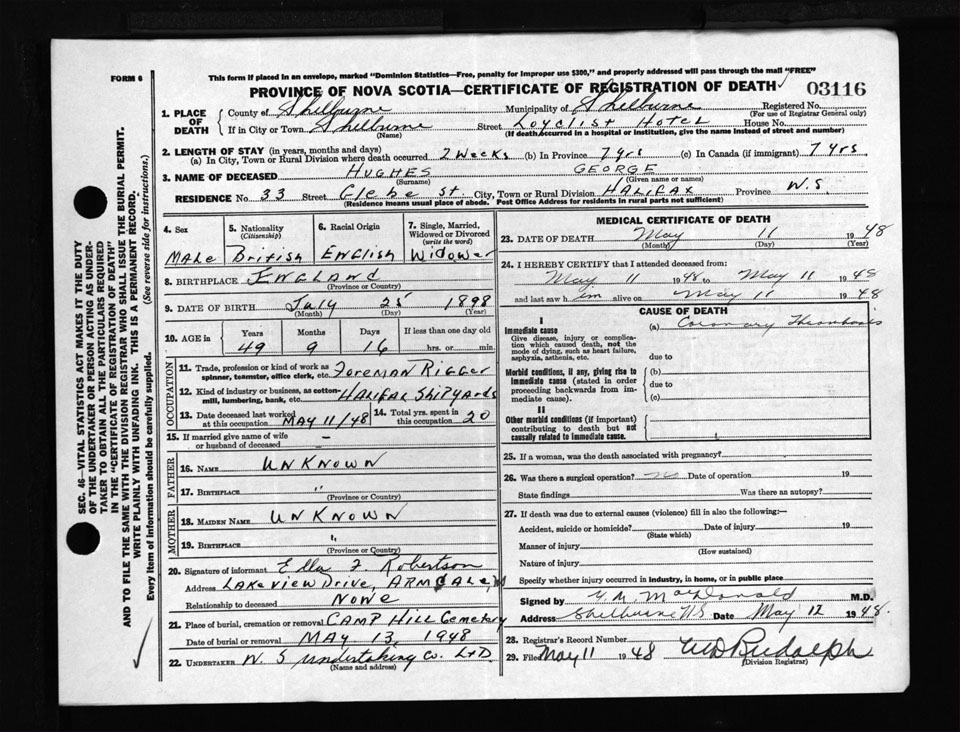 FORM 6
This form if placed in an envelope, marked "Dominion Statistics—Free, penalty for improper use $300," and properly addressed will pass through the mail "FREE"
PROVINCE OF NOVA SCOTIA—CERTIFICATE OF REGISTRATION OF DEATH 03116
1. PLACE OF DEATH
County of Shelburne Municipality of Shelburne Registered No.
(For use of Registrar General only)
If in City or Town Shelburne Street Loyalist Hotel House No.
(Name) (If death occurred in a hospital or institution, give the name instead of street and number)
2. LENGTH OF STAY (in years, months and days)
(a) In City, Town or Rural Division where death occurred 2 weeks (b) In Province 7 yrs (c) In Canada (if immigrant) 7 yrs.
3. NAME OF DECEASED HUGHES GEORGE
(Surname) (Given name or names)
RESIDENCE No. 33 Street Glebe St. City, Town or Rural Division HALIFAX Province N.S.
(Residence means usual place of abode. Post Office Address for residents in rural parts not sufficient)
4. Sex 5. Nationality (Citizenship) 6. Racial Origin 7. Single, Married, Widowed or Divorced (write the word)
Male British English Widower
8. BIRTHPLACE ENGLAND
(Province or Country)
9. DATE OF BIRTH July 25 1898
(Month) (Day) (Year)
10. AGE in Years Months Days If less than one day old
49 9 16 hrs. or min.
OCCUPATION
11. Trade, profession or kind of work as spinner, teamster, office clerk, etc. Foreman Rigger
12. Kind of industry or business, as cotton-mill, lumbering, bank, etc. Halifax Shipyards
13. Date deceased last worked at this occupation MAY 11/48 14. Total yrs. spent in this occupation 20
15. If married give name of wife or husband of deceased –
FATHER
16. NAME UNKNOWN
17. BIRTHPLACE "
(Province or Country)
MOTHER
18. MAIDEN NAME UNKNOWN
19. BIRTHPLACE "
(Province or Country)
20. Signature of informant Ella F. Robertson
Address Lakeview Drive, ARMDALE,
Relationship to deceased NONE
21. Place of burial, cremation or removal CAMP HILL Cemetery
Date of burial or removal MAY 13, 1948
22. UNDERTAKER N. S Undertaking Co. LTD
(Name and address)
MEDICAL CERTIFICATE OF DEATH
23. DATE OF DEATH May 11 1948
(Month) (Day) (Year)
24. I HEREBY CERTIFY that I attended deceased from:
May 11 1948 to May 11 1948
and last saw him alive on May 11 1948
CAUSE OF DEATH
I
Immediate cause
Give disease, injury or complication which caused death, not the mode of dying, such as heart failure, asphyxia, asthenia, etc.
(a) Coronary Thrombosis
due to
Morbid conditions, if any, giving rise to immediate cause (stated in order proceeding backwards from immediate cause).
(b)
due to
(c)
II
Other morbid conditions (if important) contributing to death but not causally related to immediate cause.
25. If a woman, was the death associated with pregnancy?
26. Was there a surgical operation? no Date of operation 19
State findings Was there an autopsy?
27. If death was due to external causes (violence) fill in also the following:—
Accident, suicide or homicide? Date of injury 19
(State which)
Manner of injury
(How sustained)
Nature of injury
Specify whether injury occurred in industry, in home, or in public place
Signed by MacDonald M.D.
Address Shelburne N.S Date May 12 1948.
28. Registrar's Record Number
29. Filed May 11 1948 Rudolph
(Division Registrar)
SEC. 46—VITAL STATISTICS ACT MAKES IT THE DUTY
OF THE UNDERTAKER OR PERSON ACTING AS UNDER-
TAKER TO OBTAIN ALL THE PARTICULARS REQUIRED
IN THE "CERTIFICATE OF REGISTRATION OF DEATH"
AND TO FILE THE SAME WITH THE DIVISION REGISTRAR WHO SHALL ISSUE THE BURIAL PERMIT.
WRITE PLAINLY WITH UNFADING INK. THIS IS A PERMANENT RECORD.
Every item of information should be carefully supplied. (See reverse side for instructions.)